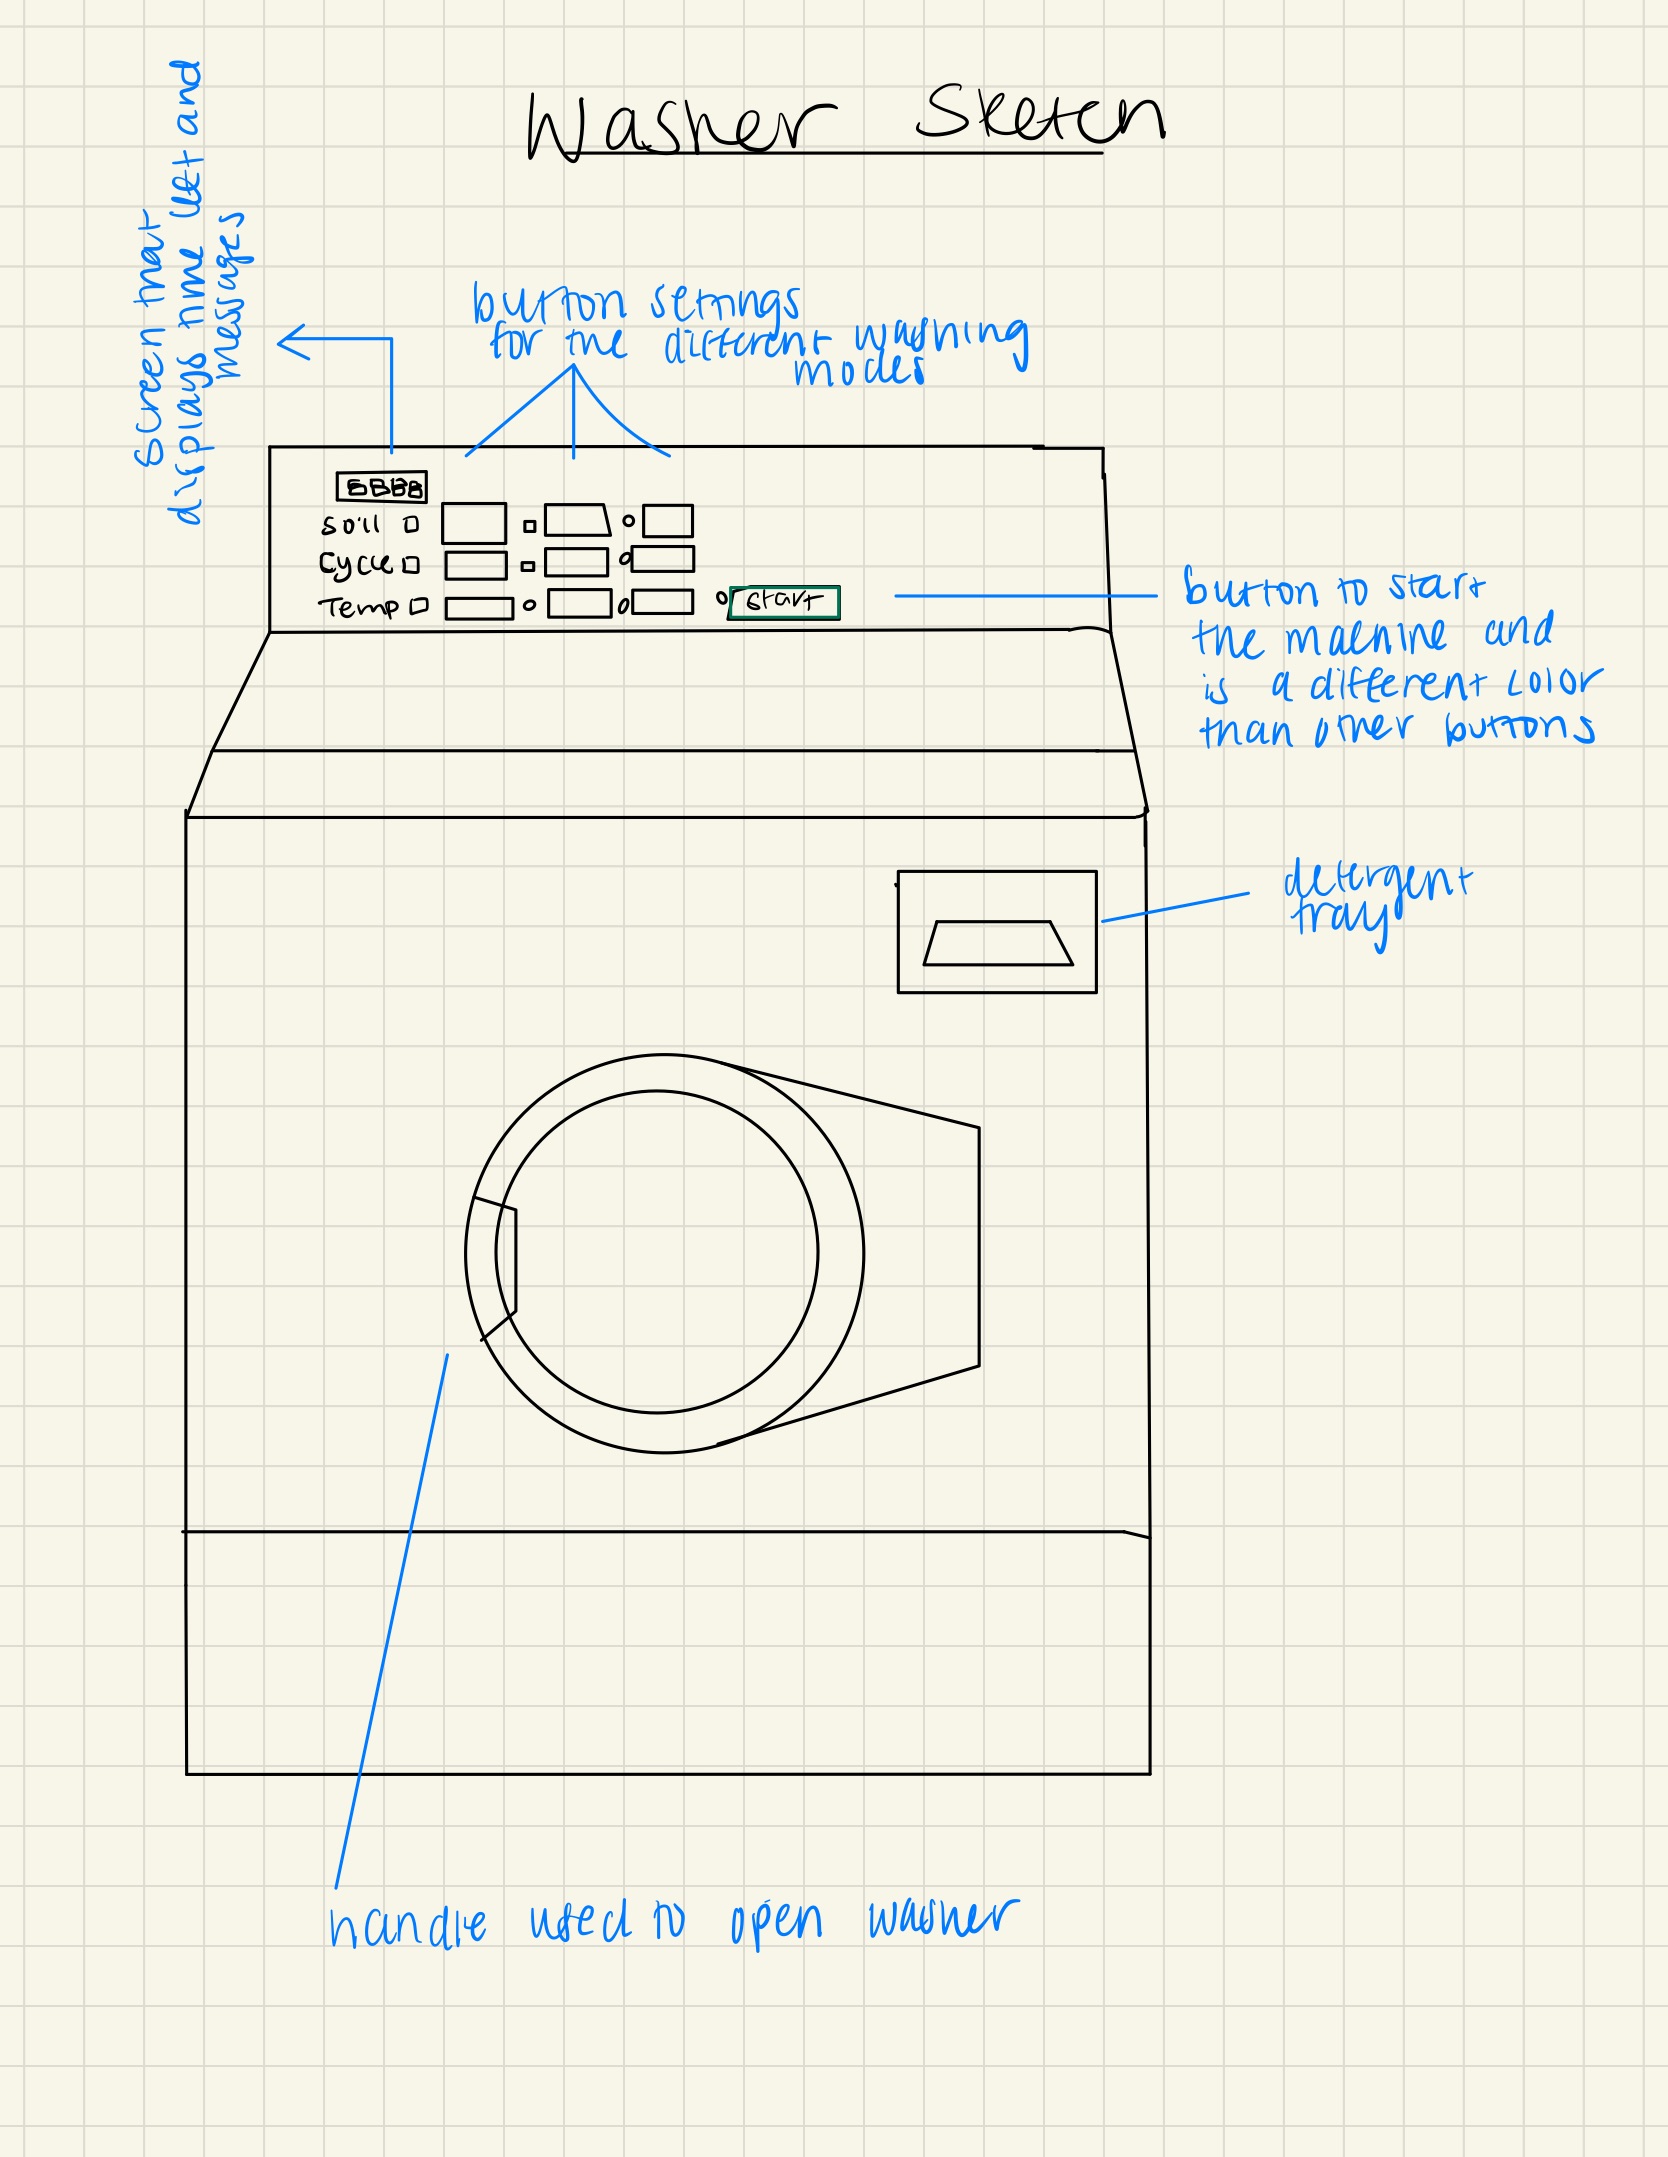 Washer Sketch
Screen that
displays time left and
messages
button settings
for the different washing
modes
8888
Soil
Cycle
Temp
Start
button to start
the machine and
is a different color
than other buttons
detergent
tray
handle used to open washer